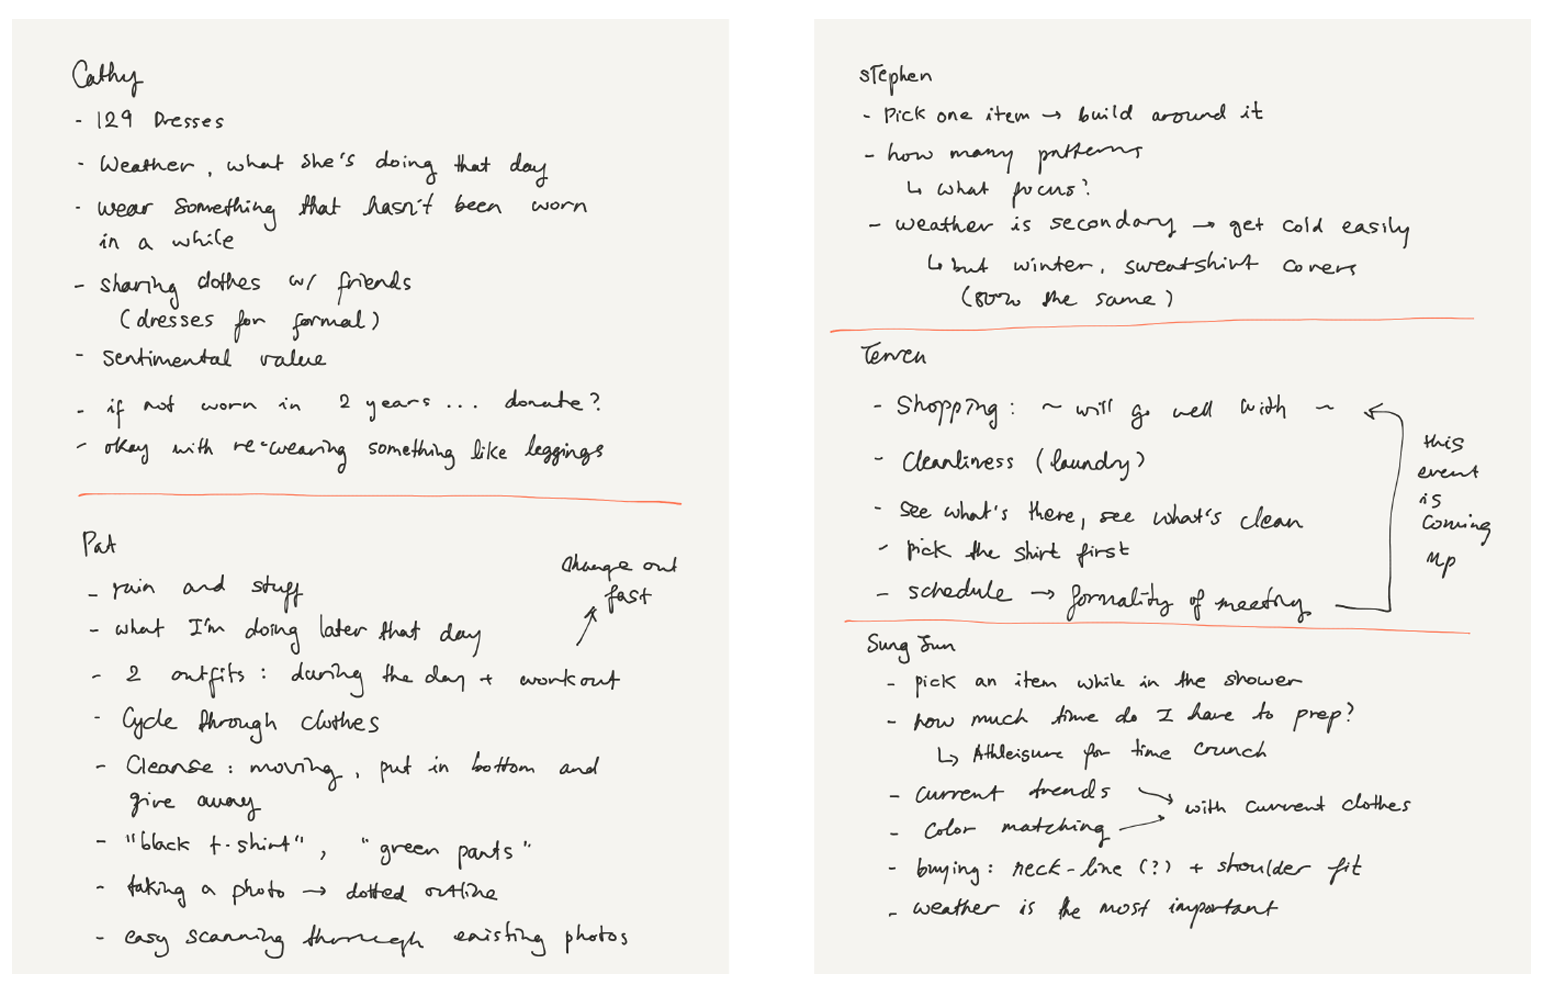 Cathy
- 129 Dresses
- Weather, what she's doing that day
- wear something that hasn't been worn
in a while
- sharing clothes w/ friends
(dresses for formal)
- sentimental value
- if not worn in 2 years... donate?
- okay with re-wearing something like leggings
Pat
- rain and stuff
- what I'm doing later that day
- 2 outfits: during the day + workout
change out
fast
- Cycle through clothes
- Cleanse: moving, put in bottom and
give away
- "black t-shirt", "green pants"
- taking a photo → dotted outline
- easy scanning through existing photos
Stephen
- Pick one item → build around it
- how many patterns
↳ what focus?
- weather is secondary → get cold easily
↳ but winter, sweatshirt covers
(80% the same)
- Shopping: ~ will go well with ~
- Cleanliness (laundry)
- see what's there, see what's clean
- pick the shirt first
- schedule → formality of meeting
this
event
is
coming
up
Sung Jun
- pick an item while in the shower
- how much time do I have to prep?
↳ Athleisure for time crunch
- current trends
- color matching
→ with current clothes
- buying: neck-line (?) + shoulder fit
- weather is the most important